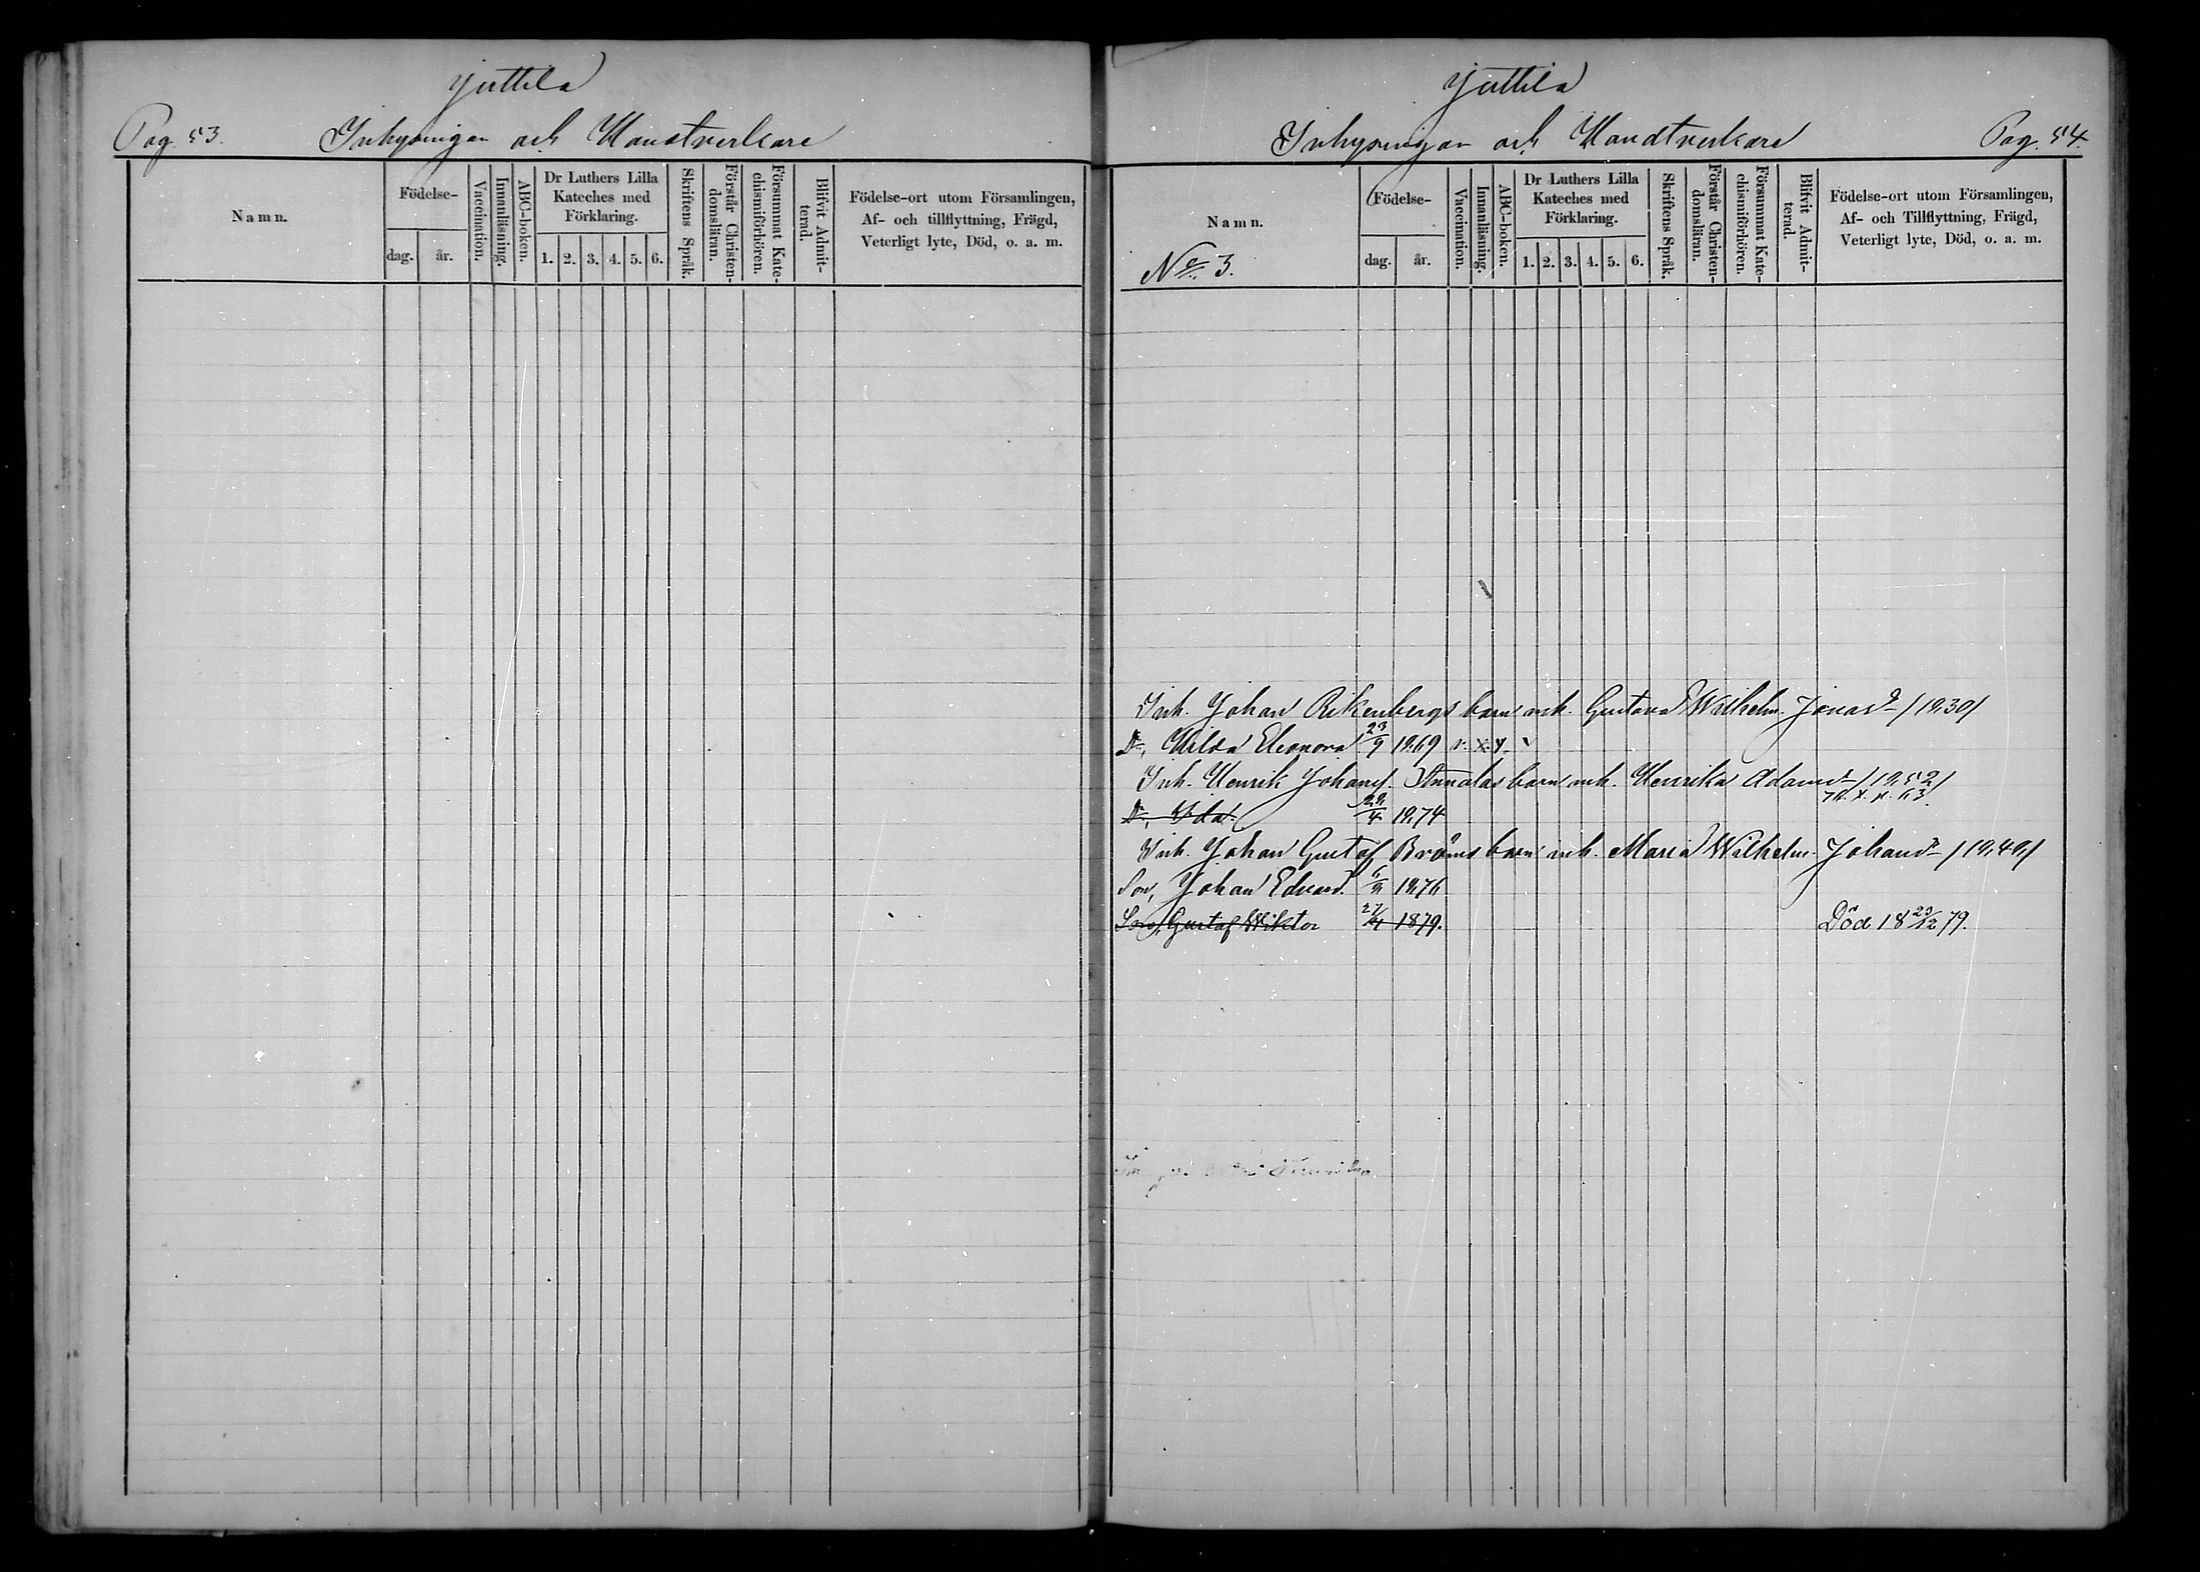 Juttila
Pag. 53. Inhysingar och Handtverkare
Namn.
Födelse-
dag. år.
Vaccination.
Innanläsning.
ABC-boken.
Dr Luthers Lilla Kateches med Förklaring.
1. 2. 3. 4. 5. 6.
Skriftens Språk.
Förstår Christendomsläran.
Försummat Katechismiförhören.
Blifvit Admitterad.
Födelse-ort utom Församlingen,
Af- och tillflyttning, Frägd,
Veterligt lyte, Död, o. a. m.
Juttila
Inhysingar och Handtverkare Pag. 54.
Namn.
No 3.
Födelse-
dag. år.
Vaccination.
Innanläsning.
ABC-boken.
Dr Luthers Lilla Kateches med Förklaring.
1. 2. 3. 4. 5. 6.
Skriftens Språk.
Förstår Christendomsläran.
Försummat Katechismiförhören.
Blifvit Admitterad.
Födelse-ort utom Församlingen,
Af- och Tillflyttning, Frägd,
Veterligt lyte, Död, o. a. m.
Inh. Johan Rikenbergs barn m.h. Gustava Wilhelm. Jonasd. /1830/
Dr, Hilda Eleonora 23/9 1869 v. x. y.
Inh. Henrik Johans. Annalas barn m.h. Henrika Adamsd. /1852/
Dr, Ida 22/4 1874
Inh. Johan Gustaf Bröms barn m.h. Maria Wilhelm. Johansd. /1840/
Son, Johan Edvard 6/9 1876
Son, Gustaf Wiktor 27/4 1879. Död 18 23/12 79.